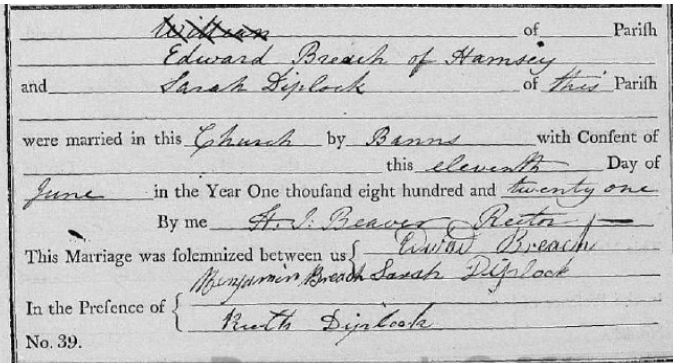 William of Parish
Edward Breach of Hamsey
and Sarah Diplock of this Parish
were married in this Church by Banns with Consent of
this eleventh Day of
June in the Year One thousand eight hundred and twenty one
By me H. J. Beaver Rector
This Marriage was solemnized between us Edward Breach
Sarah Diplock
In the Presence of Benjamin Breach
Ruth Diplock
No. 39.